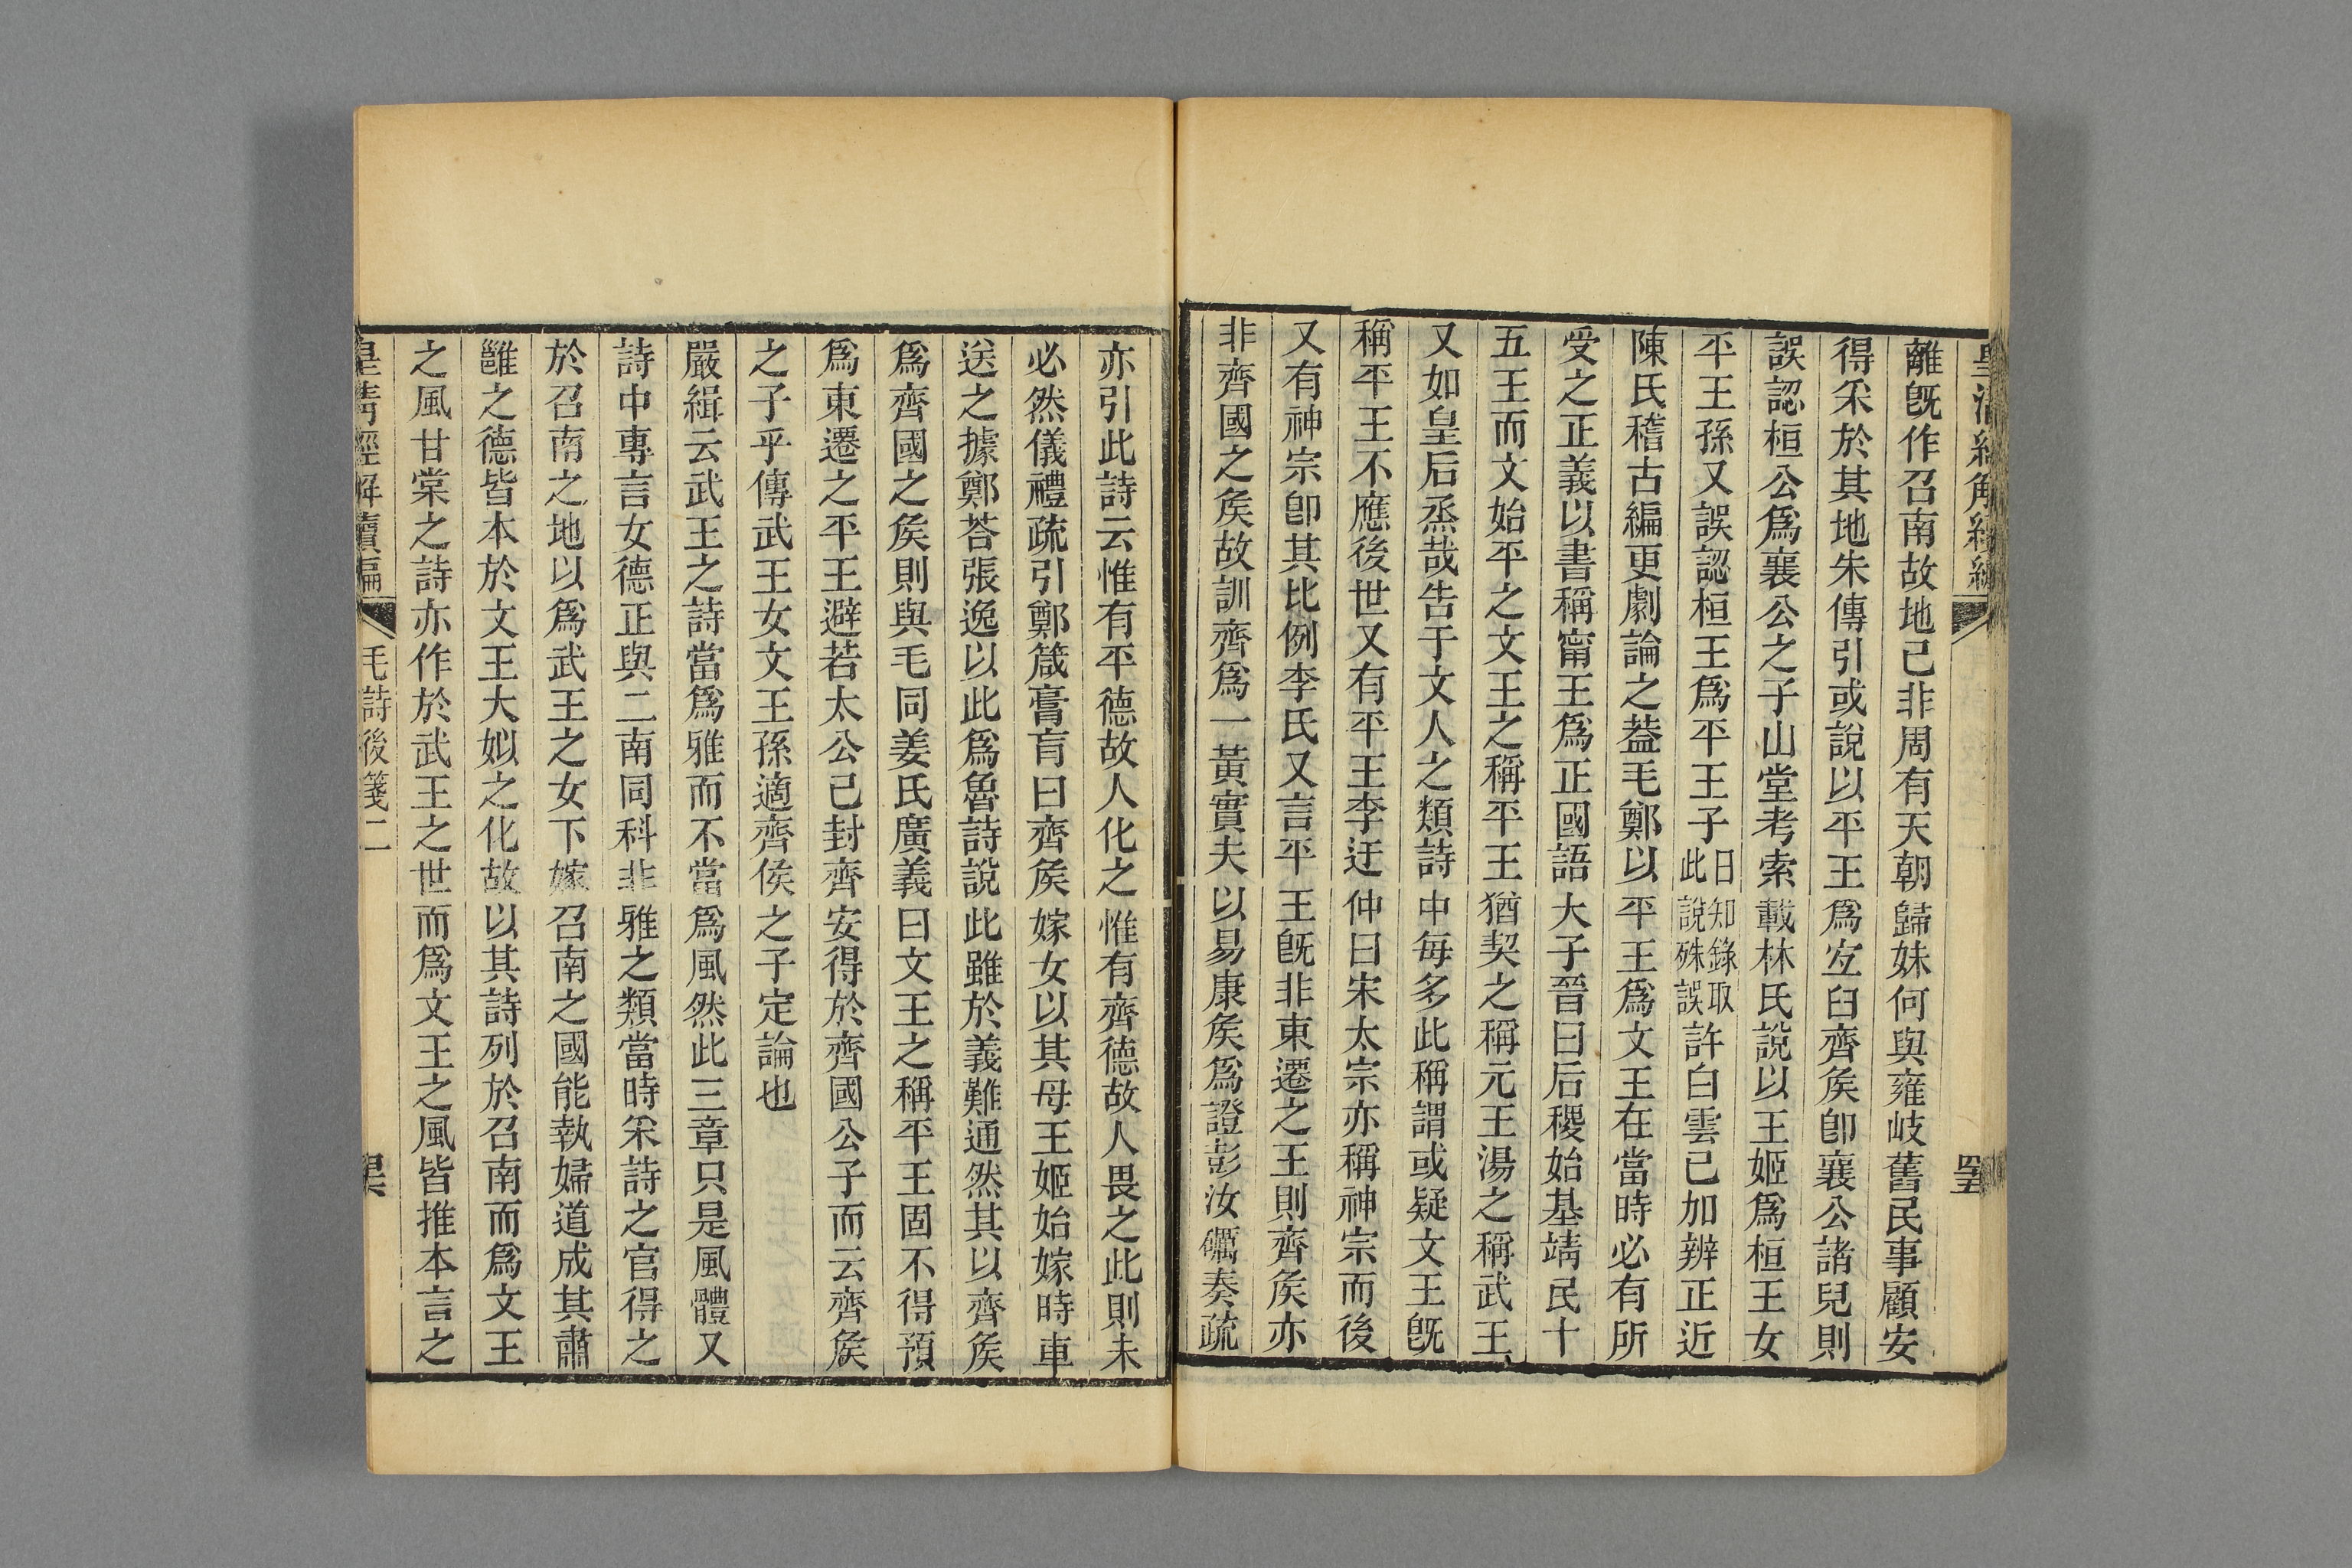 離旣作召南故地已非周有天朝歸妹何與雍岐舊民事顧安
得采於其地朱傳引或說以平王爲宜臼齊矦卽襄公諸兒則
誤認桓公爲襄公之子山堂考索載林氏說以王姬爲桓王女
平王孫又誤認桓王爲平王子日知錄取此說殊誤許白雲已加辨正近
陳氏稽古編更劇論之葢毛鄭以平王爲文王在當時必有所
受之正義以書稱甯王爲正國語大子晉曰后稷始基靖民十
五王而文始平之文王之稱平王猶契之稱元王湯之稱武王
又如皇后烝哉告于文人之類詩中每多此稱謂或疑文王旣
稱平王不應後世又有平王李迂仲曰宋太宗亦稱神宗而後
又有神宗卽其比例李氏又言平王旣非東遷之王則齊矦亦
非齊國之矦故訓齊爲一黃實夫以易康矦爲證彭汝礪奏疏
亦引此詩云惟有平德故人化之惟有齊德故人畏之此則未
必然儀禮疏引鄭箴膏肓曰齊矦嫁女以其母王姬始嫁時車
送之據鄭荅張逸以此爲魯詩說此雖於義難通然其以齊矦
爲齊國之矦則與毛同姜氏廣義曰文王之稱平王固不得預
爲東遷之平王避若太公已封齊安得於齊國公子而云齊矦
之子乎傳武王女文王孫適齊侯之子定論也
嚴緝云武王之詩當爲雅而不當爲風然此三章只是風體又
詩中專言女德正與二南同科非雅之類當時采詩之官得之
於召南之地以爲武王之女下嫁召南之國能執婦道成其肅
雝之德皆本於文王大姒之化故以其詩列於召南而爲文王
之風甘棠之詩亦作於武王之世而爲文王之風皆推本言之
皇淸經解續編 毛詩後箋二